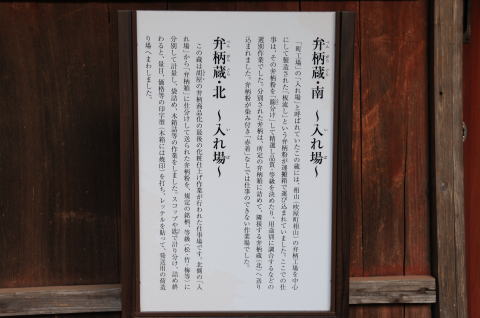 弁柄蔵・南　～入れ場～
べんがらぐら
いれば
「町工場」の「入れ場」と呼ばれていたこの蔵には、相山(吹屋町相山)の弁柄工場を中心
にして製造された「板流し」という弁柄粉が運搬箱で運び込まれていました。ここでの仕
事は、その弁柄粉を「篩分け」して精選し品質、等級を決めたり、用途別に調合するなどの
選別作業でした。分別された弁柄は、所定の弁柄箱に詰めて、隣接する弁柄蔵(北)へ送り
込まれました。弁柄粉が染み付き「赤着」なしでは仕事のできない作業場でした。
弁柄蔵・北　～入れ場～
この蔵は胡屋の弁柄商品化の最後の化粧仕上げ作業が行われた仕事場です。北側の「入
れ場」から「弁柄箱」に仕分けして送られた弁柄粉を、規定の銘柄、等級(松・竹・梅等)に
分別して計量し、袋詰め、木箱詰等の作業をしました。スコップや匙で計り分け、詰め終
わると、量目、価格等の印字票(木箱には焼印)を打ち、レッテルを貼って、発送用の荷造
り場へまわしました。